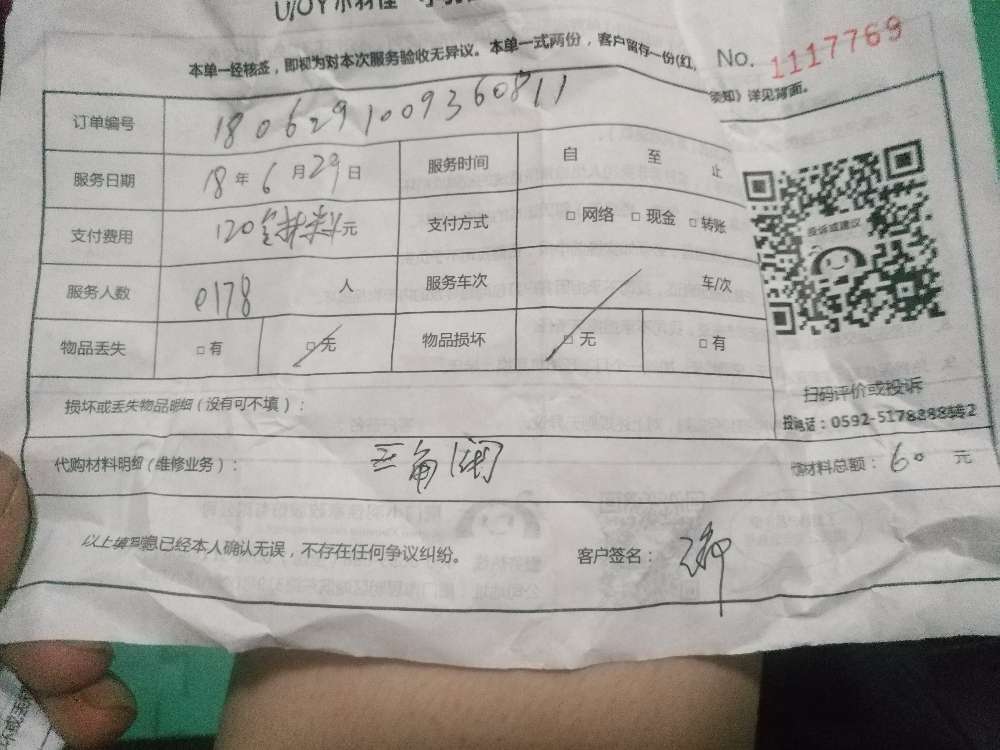 本单一经核签，即视为对本次服务验收无异议。本单一式两份，客户留存一份(红,
No. 1117769
须知》详见背面。
订单编号 180629100936081１
服务日期 18 年 6 月 29 日 服务时间 自 至 止
支付费用 120 元 支付方式 □ 网络 □ 现金 □ 转账
服务人数 0178 人 服务车次 车/次
物品丢失 □ 有 □ 无 物品损坏 □ 无 □ 有
投诉或建议
扫码评价或投诉
损坏或丢失物品明细（没有可不填）：
电话：0592-5178288
代购材料明细（维修业务）： 三角阀 材料总额： 60 元
以上填写息已经本人确认无误，不存在任何争议纠纷。 客户签名：